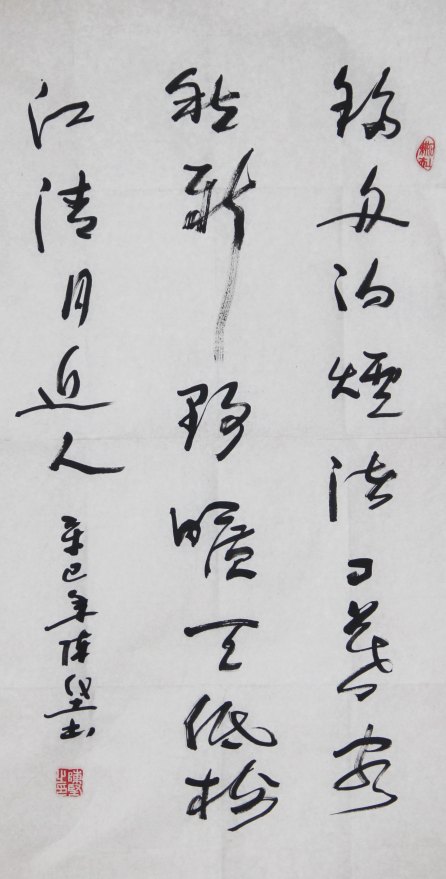 移舟泊煙渚日暮客
愁新野曠天低樹
江清月近人
辛巳年陳堅书
陳堅之印